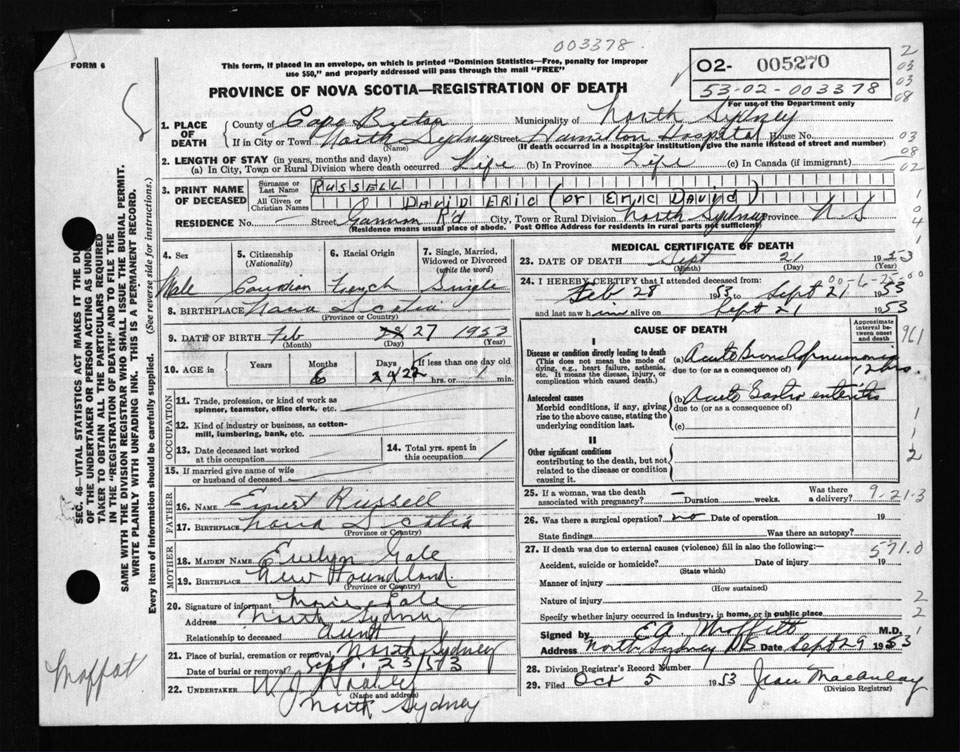 003378.
FORM 6
This form, if placed in an envelope, on which is printed "Dominion Statistics—Free, penalty for improper
use $50," and properly addressed will pass through the mail "FREE"
PROVINCE OF NOVA SCOTIA—REGISTRATION OF DEATH
02- 005270
53-02-003378
For use of the Department only
2
03
03
08
1. PLACE OF DEATH
County of Cape Breton Municipality of North Sydney
If in City or Town North Sydney Street Hamilton Hospital House No.
(Name) (If death occurred in a hospital or institution give the name instead of street and number)
03
08
02
2. LENGTH OF STAY (in years, months and days)
(a) In City, Town or Rural Division where death occurred Life (b) In Province Life (c) In Canada (if immigrant)
3. PRINT NAME OF DECEASED
Surname or Last Name RUSSELL
All Given or Christian Names DAVID ERIC (or Eric David)
RESIDENCE No. Street Gannon R'd City, Town or Rural Division North Sydney Province N S
(Residence means usual place of abode. Post Office Address for residents in rural parts not sufficient)
4. Sex
Male
5. Citizenship (Nationality)
Canadian
6. Racial Origin
French
7. Single, Married, Widowed or Divorced (write the word)
Single
8. BIRTHPLACE Nova Scotia
(Province or Country)
9. DATE OF BIRTH Feb 27 1953
(Month) (Day) (Year)
10. AGE in Years Months Days If less than one day old
6 hrs. or min.
OCCUPATION
11. Trade, profession, or kind of work as
spinner, teamster, office clerk, etc.
12. Kind of industry or business, as cotton-
mill, lumbering, bank, etc.
13. Date deceased last worked
at this occupation
14. Total yrs. spent in
this occupation
15. If married give name of wife
or husband of deceased
FATHER
16. NAME Ernest Russell
17. BIRTHPLACE Nova Scotia
(Province or Country)
MOTHER
18. MAIDEN NAME Evelyn Gale
19. BIRTHPLACE New Foundland.
(Province or Country)
20. Signature of informant Gale
Address North Sydney
Relationship to deceased aunt
21. Place of burial, cremation or removal North Sydney
Date of burial or removal Sept. 23/53
22. UNDERTAKER W J
(Name and address)
North Sydney
MEDICAL CERTIFICATE OF DEATH
23. DATE OF DEATH Sept 21 1953
(Month) (Day) (Year)
24. I HEREBY CERTIFY that I attended deceased from:
Feb 28 1953 to Sept 21 1953
and last saw him alive on Sept 21 1953
CAUSE OF DEATH
Approximate interval between onset and death
I
Disease or condition directly leading to death
(This does not mean the mode of dying, e.g., heart failure, asthenia, etc. It means the disease, injury, or complication which caused death.)
(a) Acute Bronchopneumonia
due to (or as a consequence of)
12 hrs.
Antecedent causes
Morbid conditions, if any, giving rise to the above cause, stating the underlying condition last.
(b) Acute Gastro enteritis
due to (or as a consequence of)
(c)
II
Other significant conditions
contributing to the death, but not related to the disease or condition causing it.
1
1
2
25. If a woman, was the death associated with pregnancy? – Duration weeks. Was there a delivery?
9-21-3
26. Was there a surgical operation? no Date of operation 19
State findings Was there an autopsy?
27. If death was due to external causes (violence) fill in also the following:—
571.0
Accident, suicide or homicide? Date of injury 19
(State which)
Manner of injury
(How sustained)
Nature of injury
2
Specify whether injury occurred in industry, in home, or in public place
2
Signed by E.A. Moffitt M.D.
Address North Sydney N.S Date Sept 29 1953
28. Division Registrar's Record Number
29. Filed Oct 5 1953 Jean Macaulay
(Division Registrar)
SEC. 46—VITAL STATISTICS ACT MAKES IT THE DU
OF THE UNDERTAKER OR PERSON ACTING AS UNDE
TAKER TO OBTAIN ALL THE PARTICULARS REQUIRED
IN THE "REGISTRATION OF DEATH" AND TO FILE THE
SAME WITH THE DIVISION REGISTRAR WHO SHALL ISSUE THE BURIAL PERMIT.
WRITE PLAINLY WITH UNFADING INK. THIS IS A PERMANENT RECORD.
Every item of information should be carefully supplied. (See reverse side for instructions.)
Moffat